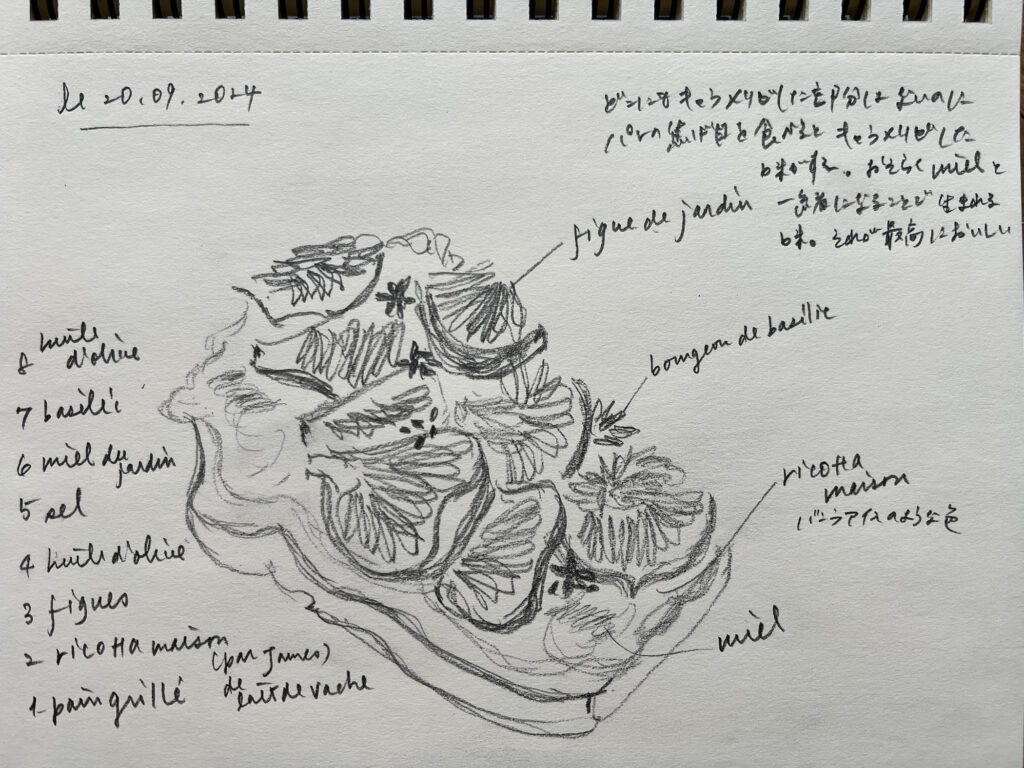 le 20.09.2024
どこにもキャラメリゼした部分はないのに
パンの焦げ目を食べると キャラメリゼした
味がする。おそらく miel と
一緒になることで 生まれる
味。それが最高においしい
figue de jardin
bourgeon de basilic
ricotta
maison
バニラアイスのような色
miel
8 huile
d'olive
7 basilic
6 miel du
jardin
5 sel
4 huile d'olive
3 figues
2 ricotta maison
(par James)
de
lait de vache
1 pain grillé